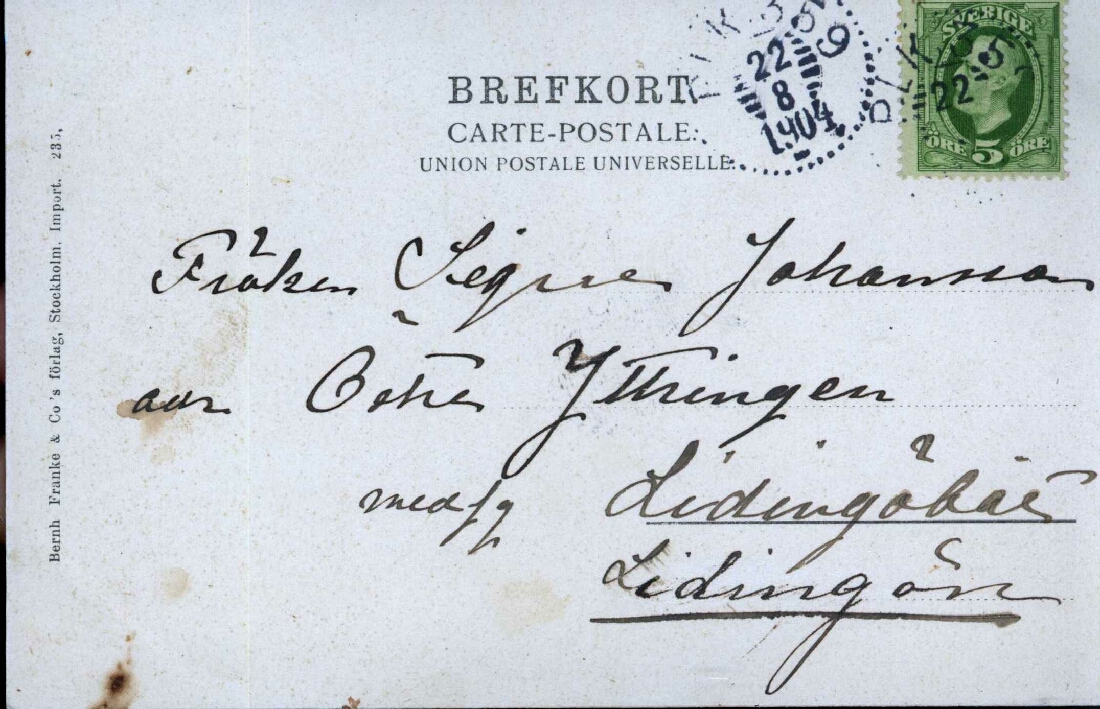 BREFKORT
CARTE-POSTALE.
UNION POSTALE UNIVERSELLE.
22
8
1904
SVERIGE
22 5
ÖRE 5 ÖRE
Fröken Signe Johansson
Östra Yttringen
Lidingöbåt
Lidingön
Bernh Franke & Co's förlag, Stockholm. Import. 235,